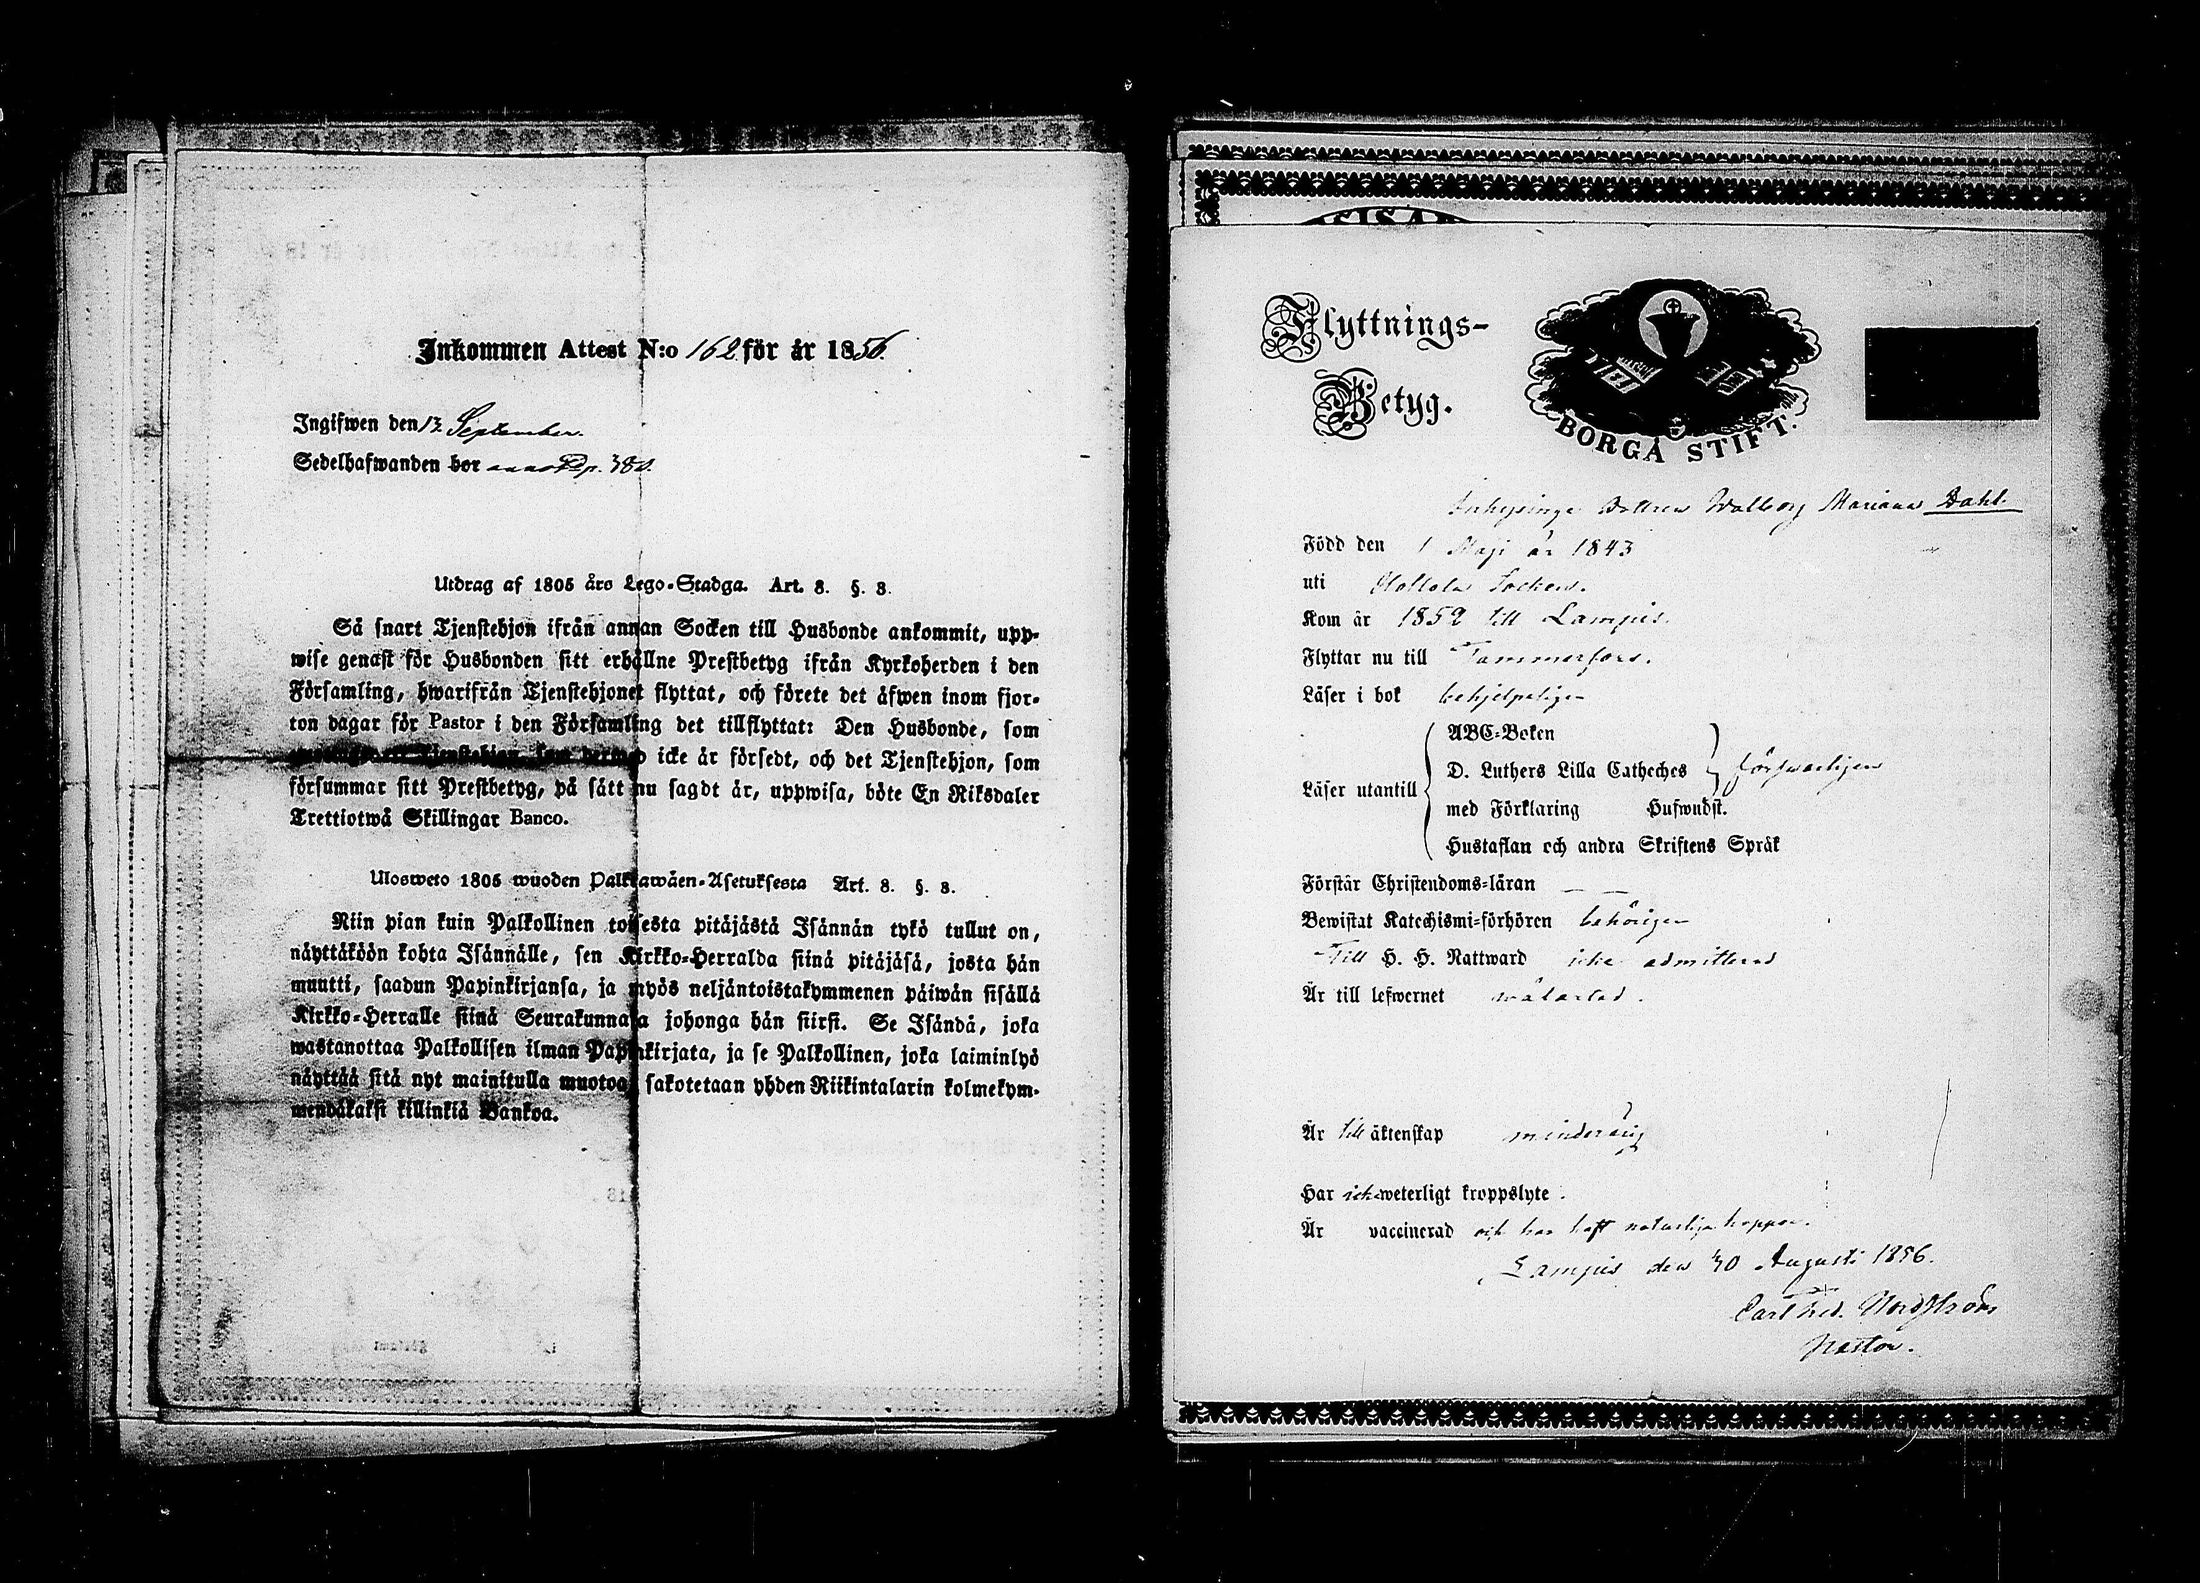 Inkommen Attest N:o 162 för år 1856.
Ingifwen den 13 September.
Sedelhafwanden bor annot. p. 380.
Utdrag af 1805 års Lego-Stadga. Art. 8. §. 3.
Så snart Tjenstehjon ifrån annan Socken till Husbonde ankommit, upp-
wise genast för Husbonden sitt erhållne Prestbetyg ifrån Kyrkoherden i den
Församling, hwarifrån Tjenstehjonet flyttat, och förete det äfwen inom fjor-
ton dagar för Pastor i den Församling det tillflyttat: Den Husbonde, som
Tjenstehjon, som dermed icke är försedt, och det Tjenstehjon, som
försummar sitt Prestbetyg, på sätt nu sagdt är, uppwisa, böte En Riksdaler
Trettiotwå Skillingar Banco.
Ulosweto 1805 wuoden Palkkawäen-Asetuksesta Art. 8. §. 3.
Niin pian kuin Palkollinen toisesta pitäjästä Isännän tykö tullut on,
näyttäköön kohta Isännälle, sen Kirkko-Herralda siinä pitäjäsä, josta hän
muutti, saadun Papinkirjansa, ja myös neljäntoistakymmenen päiwän sisällä
Kirkko-Herralle siinä Seurakunnasa johonga hän siirsi. Se Isändä, joka
wastanottaa Palkollisen ilman Papinkirjata, ja se Palkollinen, joka laiminlyö
näyttää sitä nyt mainitulla muotoa, sakotetaan yhden Riikintalarin kolmekym-
mendäkaksi killinkiä Bankoa.
Flyttnings-
Betyg.
BORGÅ STIFT.
Inhysinge Dottren Walborg Mariana Dahl.
Född den 1 Maji år 1843
uti Hollola Socken.
Kom år 1852 till Lampis.
Flyttar nu till Tammerfors.
Läser i bok behjelpeligen
Läser utantill
ABC-Boken
D. Luthers Lilla Catheches försvarligen
med Förklaring Hufwudst.
Hustaflan och andra Skriftens Språk
Förstår Christendoms-läran — —
Bewistat Katechismi-förhören behörigen
Till H. H. Nattward icke admitterad
Är till lefwernet wälartad.
Är till äktenskap minderårig
Har icke weterligt kroppslyte.
Är vaccinerad och har haft naturliga koppor.
Lampis den 30 Augusti 1856.
Carl Fred. Nordström
Pastor.